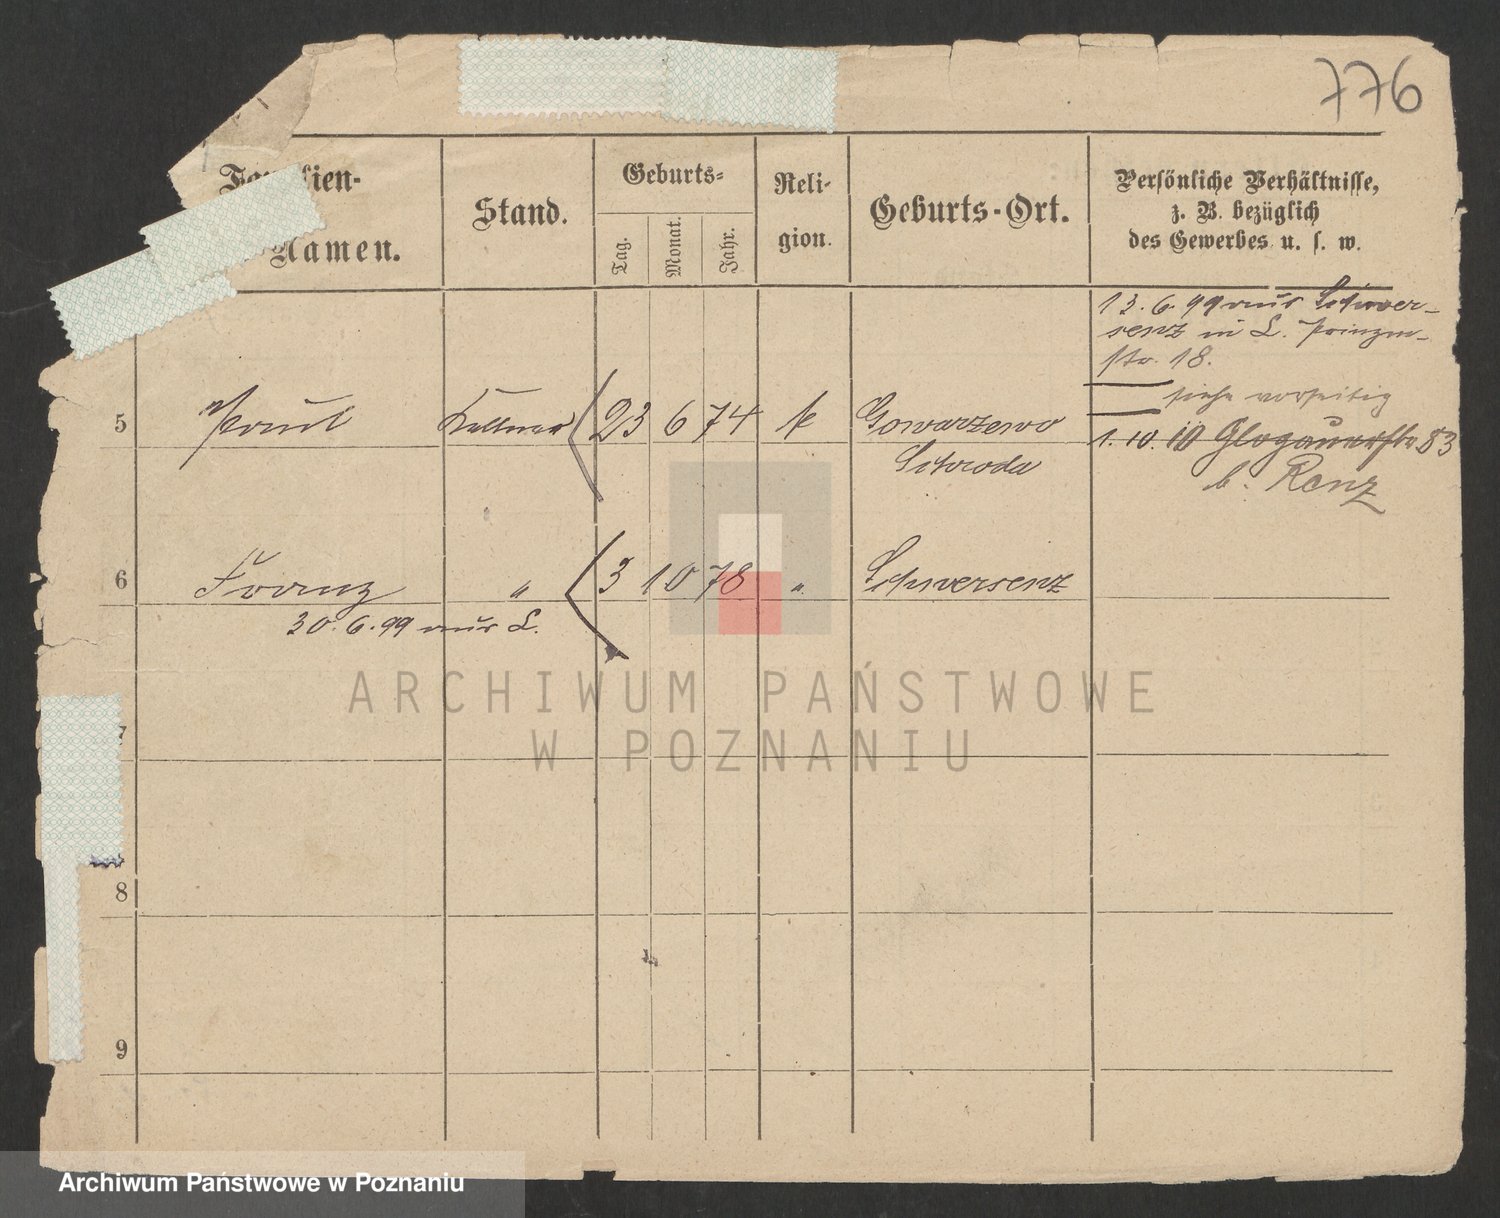 776
Familien-
Namen.
Stand.
Geburts-
Tag.
Monat.
Jahr.
Reli-
gion.
Geburts-Ort.
Persönliche Verhältnisse,
z. B. bezüglich
des Gewerbes u. s. w.
13. 6. 99 aus Schwer-
senz in L. Prinzen-
str. 18.
siehe vorseitig
5 Paul Kellner 23 6 74 k Gowarzewo
Schroda
1. 10. 10 Glogauerstr 83
b. Renz
6 Franz " 3 10 78 " Schwersenz
30. 6. 99 aus L.
7
8
9
ARCHIWUM PAŃSTWOWE
W POZNANIU
Archiwum Państwowe w Poznaniu